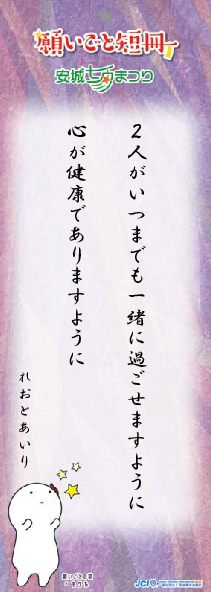 願いごと短冊
安城七夕まつり
2人がいつまでも一緒に過ごせますように
心が健康でありますように
れおとあいり
願いごと短冊
JCI